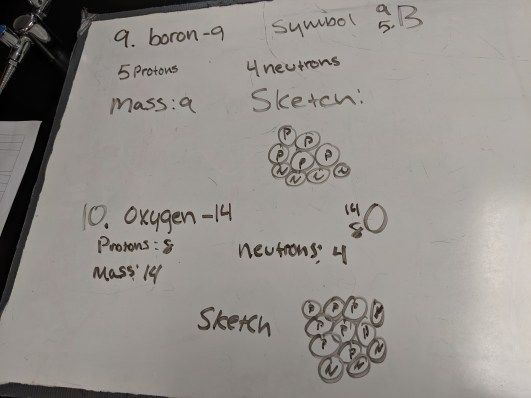 9. boron-9 Symbol 9 5 B
5 Protons 4 neutrons
Mass: 9 Sketch:
P P
P P P
N N N N
10. Oxygen-14 14 8 O
Protons: 8 neutrons: 4
Mass: 14
Sketch
P P P N
P P P
P P N
N N